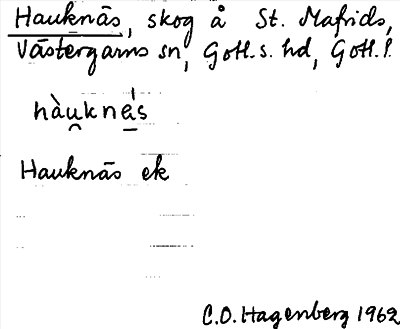 Hauknäs, skog å St. Mafrids,
Västergarns sn, Gotl. s. hd, Gotl. l.
hàu̯kne̱ʹs
Hauknäs ek
C.O. Hagenberg 1962